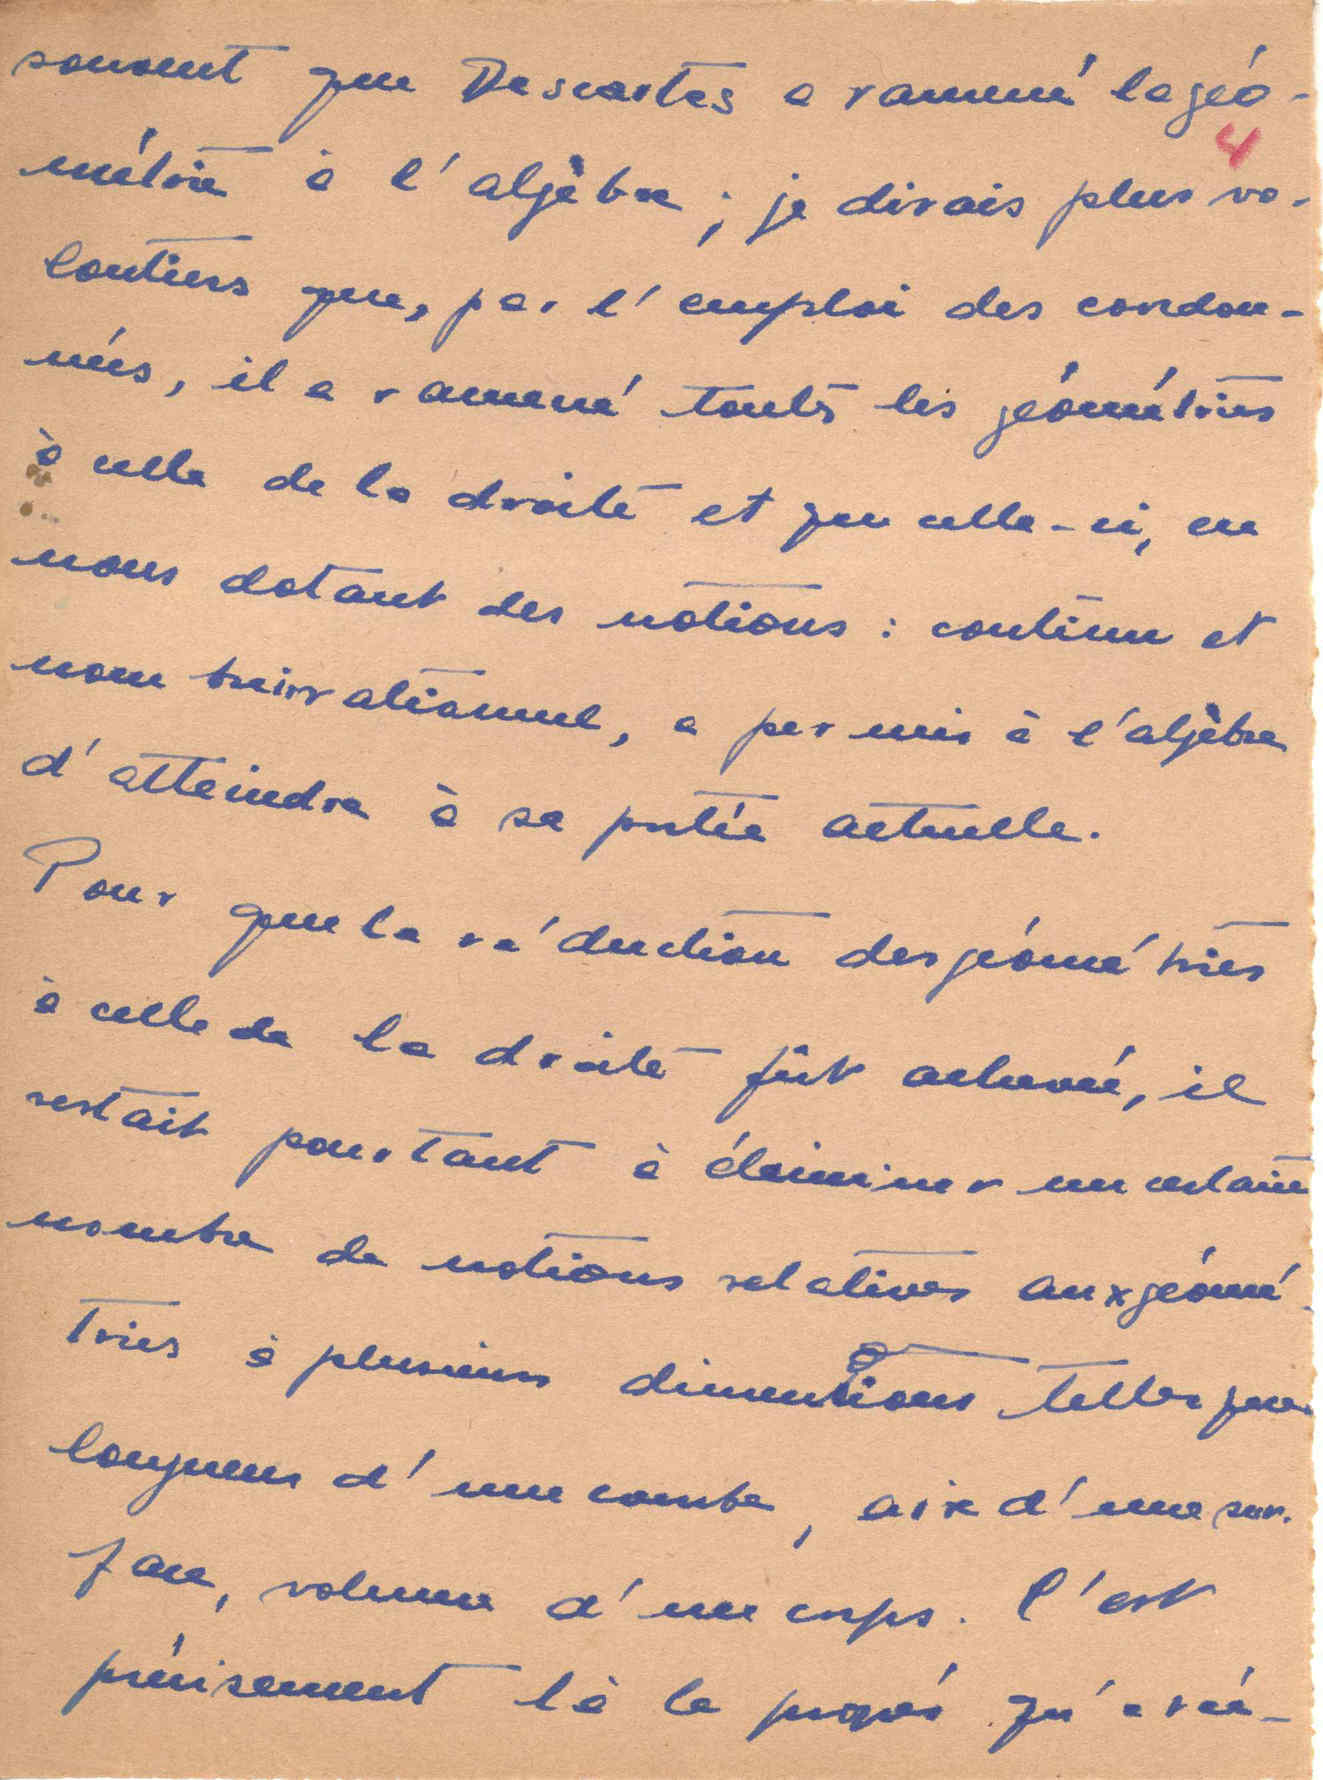 souvent que Descartes a ramené la géo-
4
métrie à l'algèbre ; je dirais plus vo-
lontiers que, par l'emploi des coordon-
nées, il a ramené toutes les géométries
à celle de la droite et que celle-ci, en
nous dotant des notions : continu et
nombre irrationnel, a permis à l'algèbre
d'atteindre à sa portée actuelle.
Pour que la réduction des géométries
à celle de la droite fût achevée, il
restait pourtant à éliminer un certain
nombre de notions relatives aux géomé-
tries à plusieurs dimensions telles que
longueur d'une courbe, aire d'une sur-
face, volume d'un corps. C'est
précisement là le progrés qu'a réa-